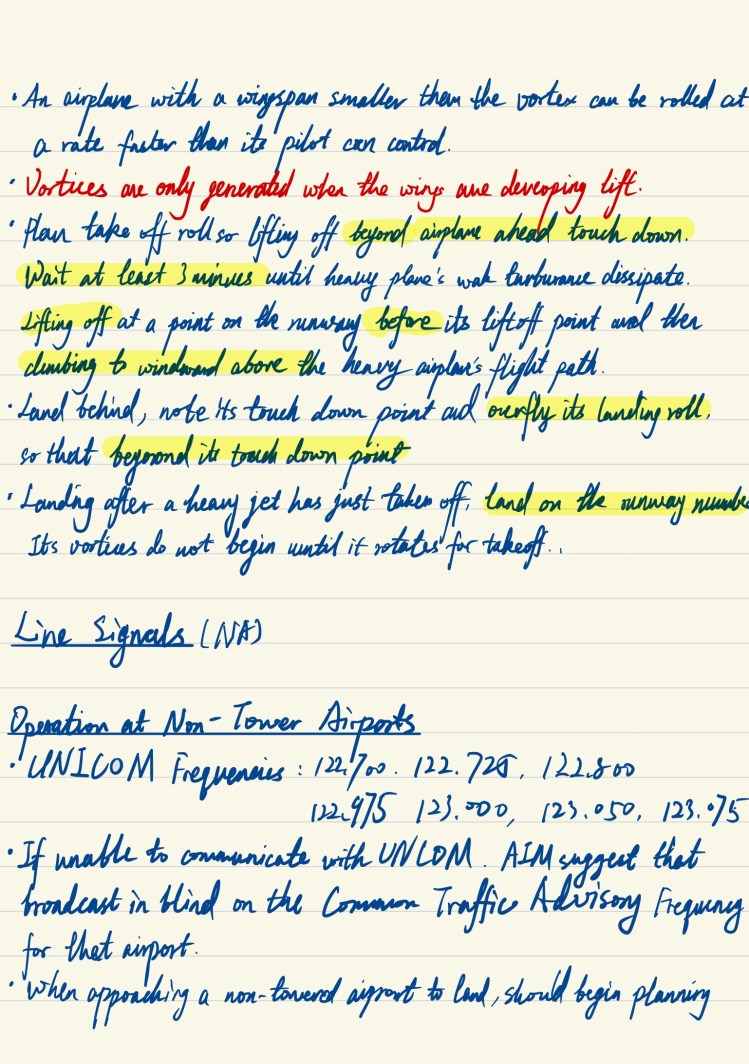 · An airplane with a wingspan smaller than the vortex can be rolled at
a rate faster than its pilot can control.
· Vortices are only generated when the wings are deveoping lift.
· Plan take off roll so lifting off beyond airplane ahead touch down.
Wait at least 3 minues until heavy plane's wak turburance dissipate.
Lifting off at a point on the runway before its liftoff point and then
climbing to windward above the heavy airplan's flight path.
· Land behind, note its touch down point and overfly its landing roll,
so that beyoond its touch down point
· Landing after a heavy jet has just taken off, land on the runway number
Its vortices do not begin until it rotates for takeoff..
Line Signals (NA)
Operation at Non-Tower Airports
· UNICOM Frequencies: 122.700. 122.725, 122.800
122.975 123.000, 123.050, 123.075
· If unable to communicate with UNCOM. AIM suggest that
broadcast in blind on the Common Traffic Advisory Frequency
for that airport.
· When approaching a non-towered airport to land, should begin planning